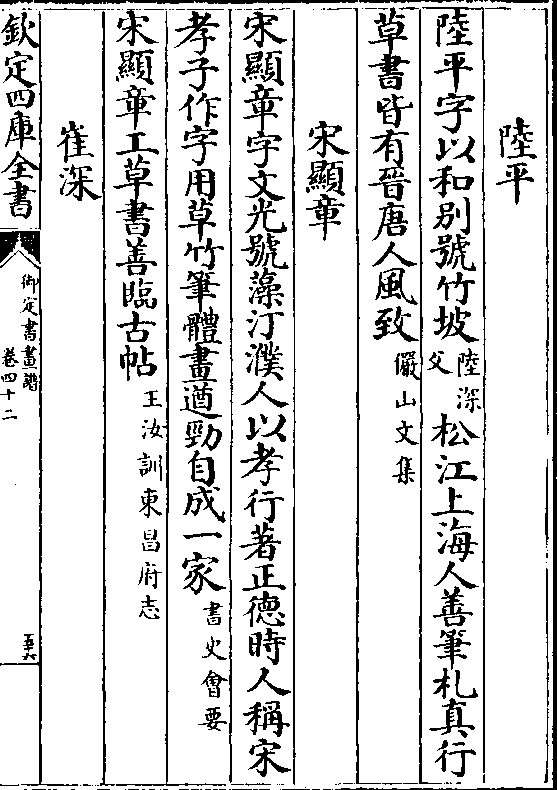 陸平
陸平字以和別號竹坡陸深父松江上海人善筆札真行
草書皆有晉唐人風致儼山文集
宋顯章
宋顯章字文光號藻汀濮人以孝行著正德時人稱宋
孝子作字用草竹筆體畫遒勁自成一家書史會要
宋顯章工草書善臨古帖王汝訓東昌府志
崔深
欽定四庫全書
御定書畫譜
卷四十二
五六